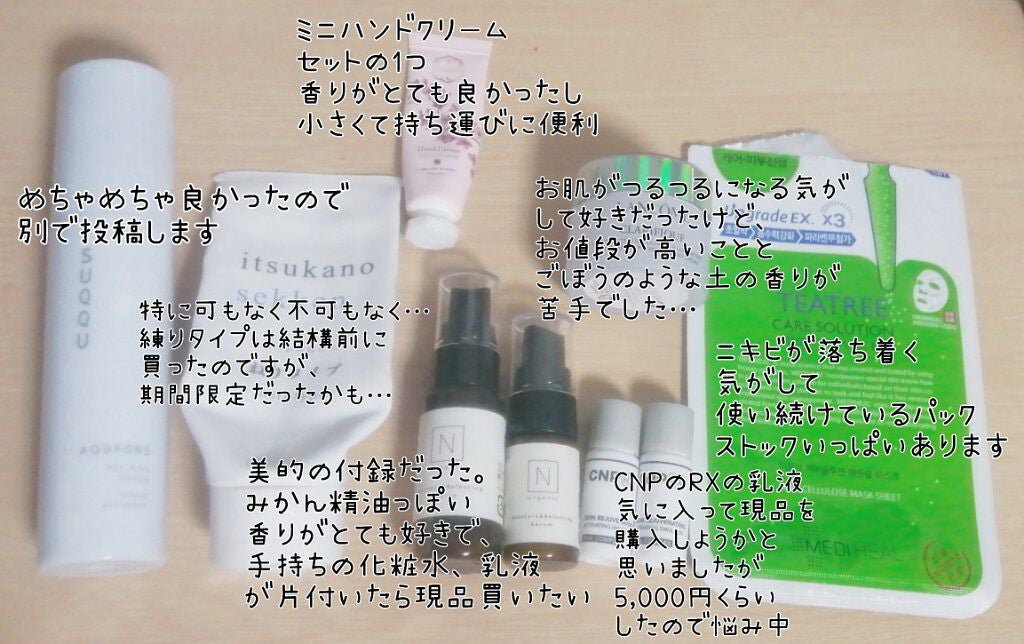 ミニハンドクリーム
セットの1つ
香りがとても良かったし
小さくて持ち運びに便利
Hand Cream
めちゃめちゃ良かったので
別で投稿します
SUQQU
AQUFONS
お肌がつるつるになる気が
して好きだったけど、
お値段が高いことと
ごぼうのような土の香りが
苦手でした…
케어·피부진정
gradeEX. x3
파라벤무첨가
TEATREE
CARE SOLUTION
itsukano
sekken
特に可もなく不可もなく…
練りタイプは結構前に
買ったのですが、
期間限定だったかも…
ニキビが落ち着く
気がして
使い続けているパック
ストックいっぱいあります
CELLULOSE MASK SHEET
MEDIHEAL
美的の付録だった。
みかん精油っぽい
香りがとても好きで、
手持ちの化粧水、乳液
が片付いたら現品買いたい
N
N
organic
Moisture&Balancing
Serum
CNP
CNPのRXの乳液
気に入って現品を
購入しようかと
思いましたが
5,000円くらい
したので悩み中